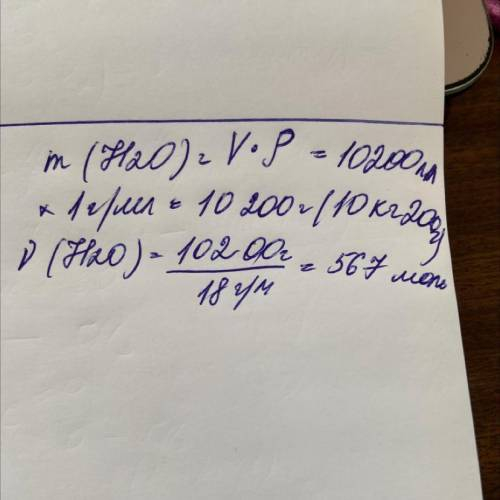 m (H2O) = V · ρ = 10200мл
× 1 г/мл = 10 200г (10 кг 200г)
ν (H2O) = 10200г / 18 г/м = 567 моль